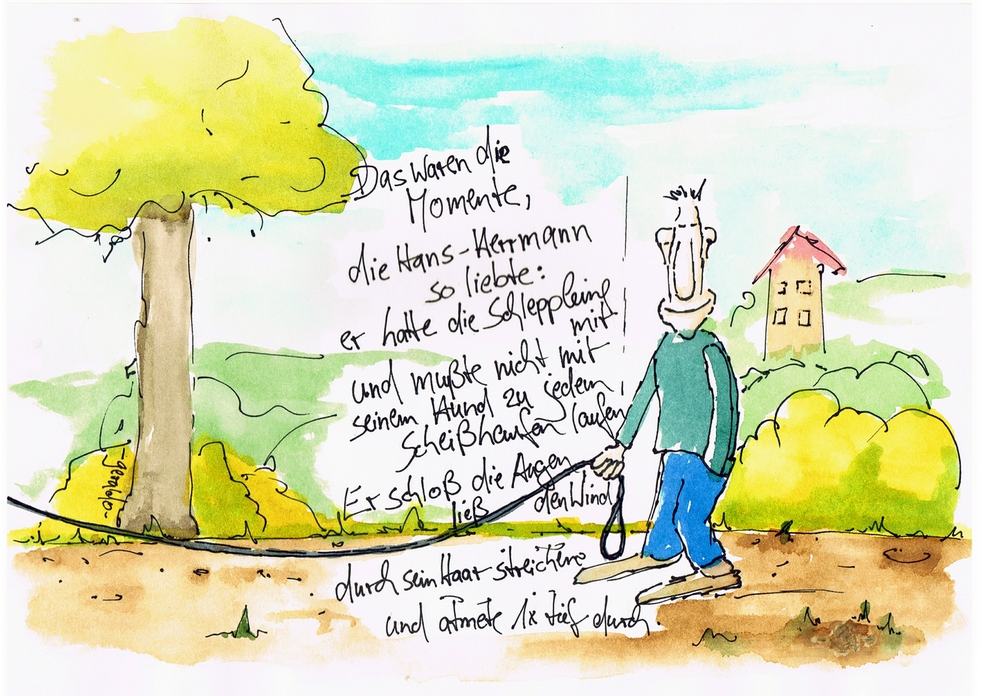 Das waren die
Momente,
die Hans-Herrmann
so liebte:
er hatte die Schleppleine
mit
und mußte nicht mit
seinem Hund zu jedem
Scheißhaufen laufen
Er schloß die Augen
ließ den Wind
durch sein Haar streichen
und atmete 1x tief durch.
-geraldo-